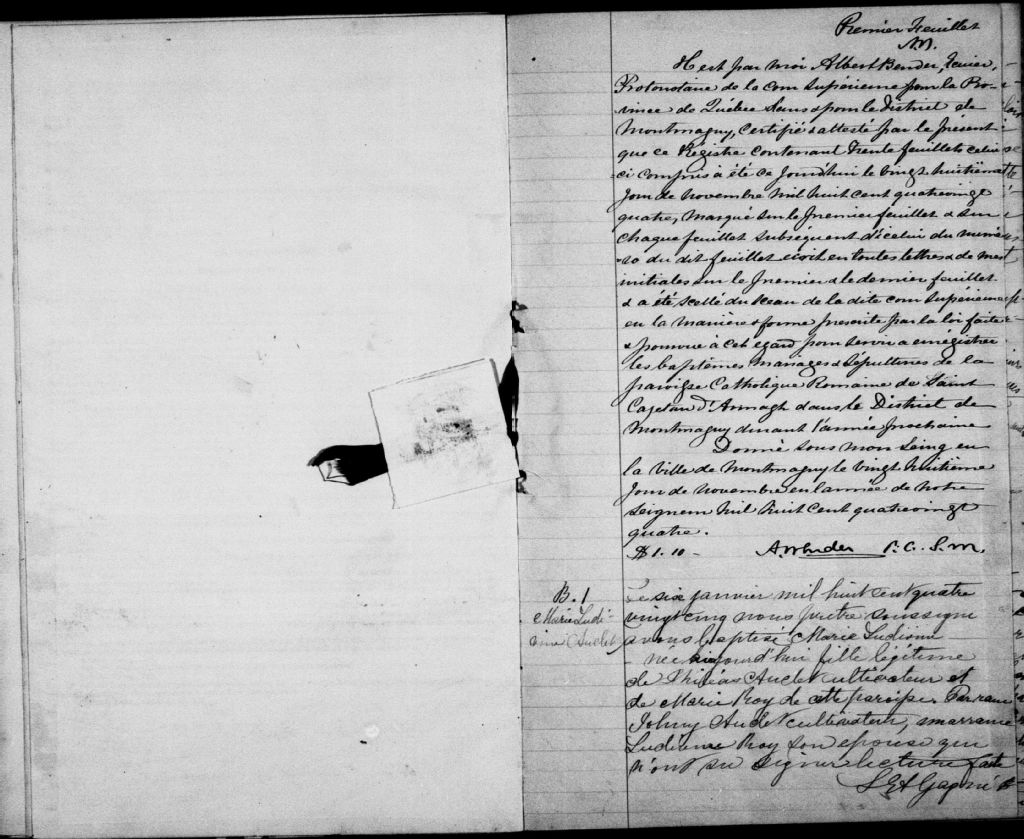 Premier Feuillet
A.B.
Il est par moi Albert Bender, Ecuier,
Protonotaire de la cour Supérieure pour la Pro-
vince de Québec dans & pour le District de
Montmagny, certifié & attesté par le présent
que ce Régistre contenant Trente feuillets celui
ci compris a été ce jourd'hui le vingt huitième
jour de novembre mil huit cent quatrevingt
quatre, marqué sur le premier feuillet & sur
chaque feuillet subséquent d'icelui du numé-
-ro du dit feuillet écrit en toutes lettres & de mes
initiales sur le premier & le dernier feuillet
& a été scellé du sceau de la dite cour Supérieure
en la manière & forme prescrite par la loi faite
& pourvue à cet egard pour servir a enrégistrer
les baptêmes mariages & Sépultures de la
paroisse Catholique Romaine de Saint
Cajetan d'Armagh dans le District de
Montmagny durant l'année prochaine
Donné sous mon seing en
la ville de Montmagny le vingt huitième
jour de novembre en l'année de notre
seigneur mil huit cent quatrevingt
quatre.
$1.10- A. Bender P.C.S.M.
B. 1
Marie Ludi-
vine Audet
Le six janvier mil huit cent quatre
vingt cinq nous prêtre soussigné
avons baptisé Marie Ludivine
née aujourd'hui fille légitime
de Philéas Audet cultivateur et
de Marie Roy de cette paroisse. Parrain
Johny Audet cultivateur, marraine
Ludivine Roy son epouse qui
n'ont su signer lecture faite
Gagné